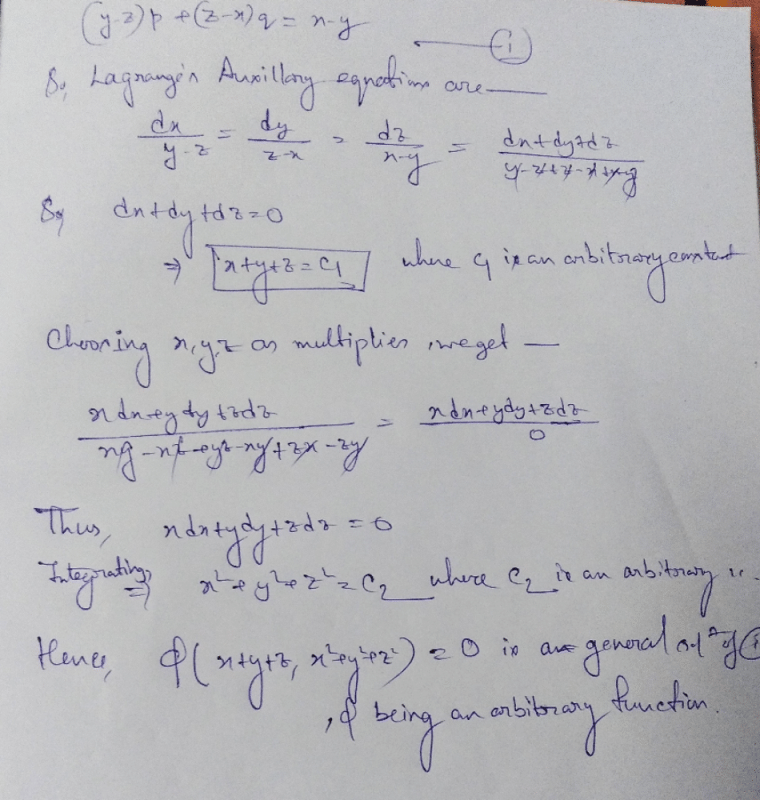 (y-z)p + (z-x)q = x-y ——— (i)
So, Lagrange's Auxillary equations are —
dx/(y-z) = dy/(z-x) = dz/(x-y) = (dx+dy+dz)/(y-z+z-x+x-y)
So, dx+dy+dz=0
⇒ x+y+z = C1 where C1 is an arbitrary constant
Choosing x,y,z as multiplier, we get —
(xdx+ydy+zdz)/(xy-xz+yz-xy+zx-zy) = (xdx+ydy+zdz)/0
Thus, xdx+ydy+zdz = 0
Integrating, ⇒ x²+y²+z² = C2 where C2 is an arbitrary
Hence, φ(x+y+z, x²+y²+z²) = 0 is general of (i)
, φ being an arbitrary function.